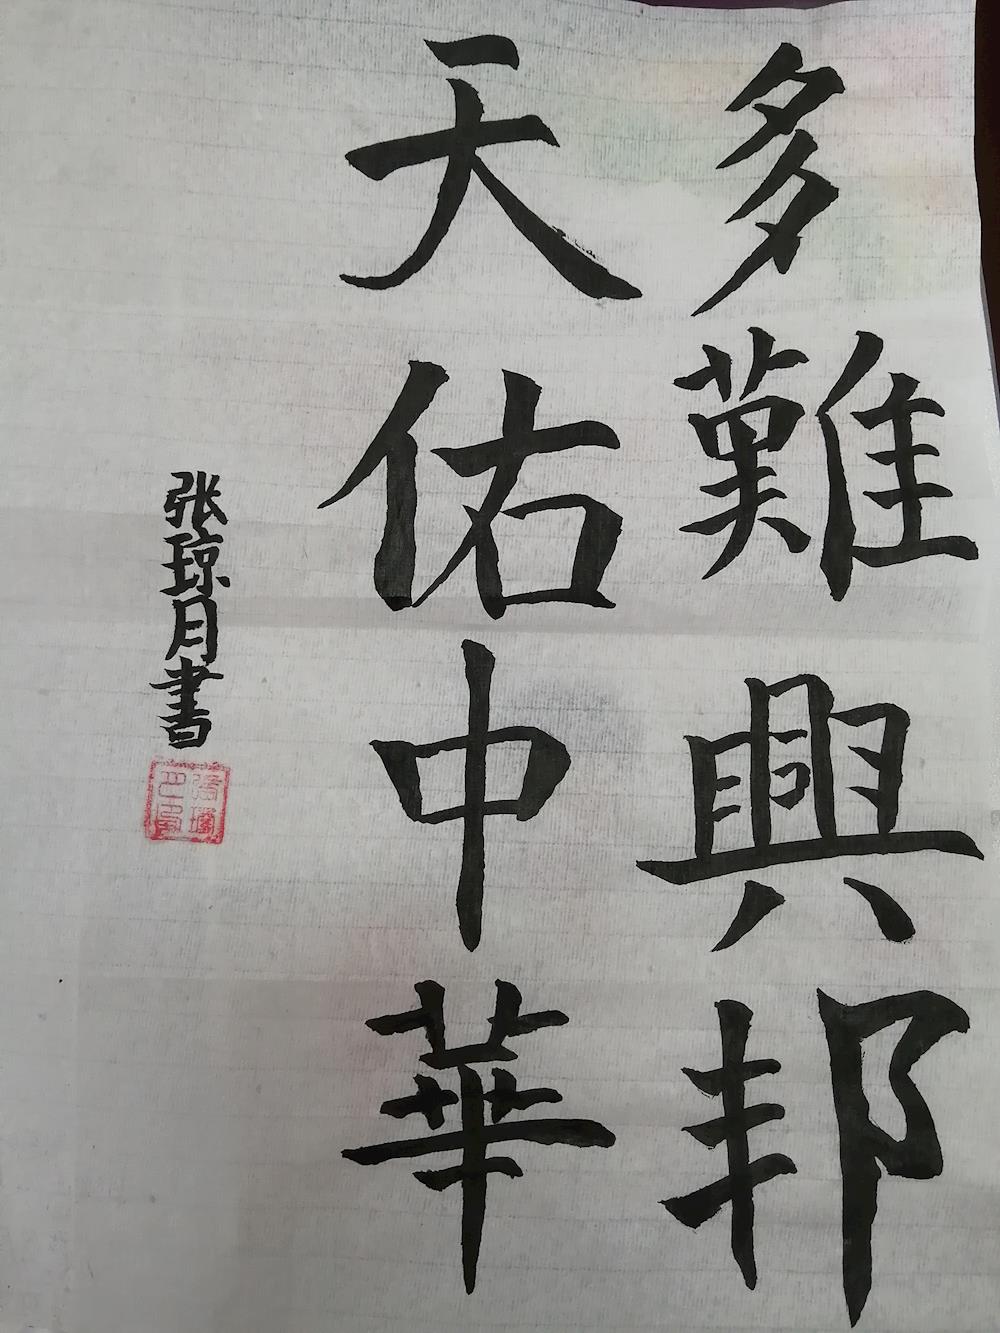 多難興邦
天佑中華
张琼月書